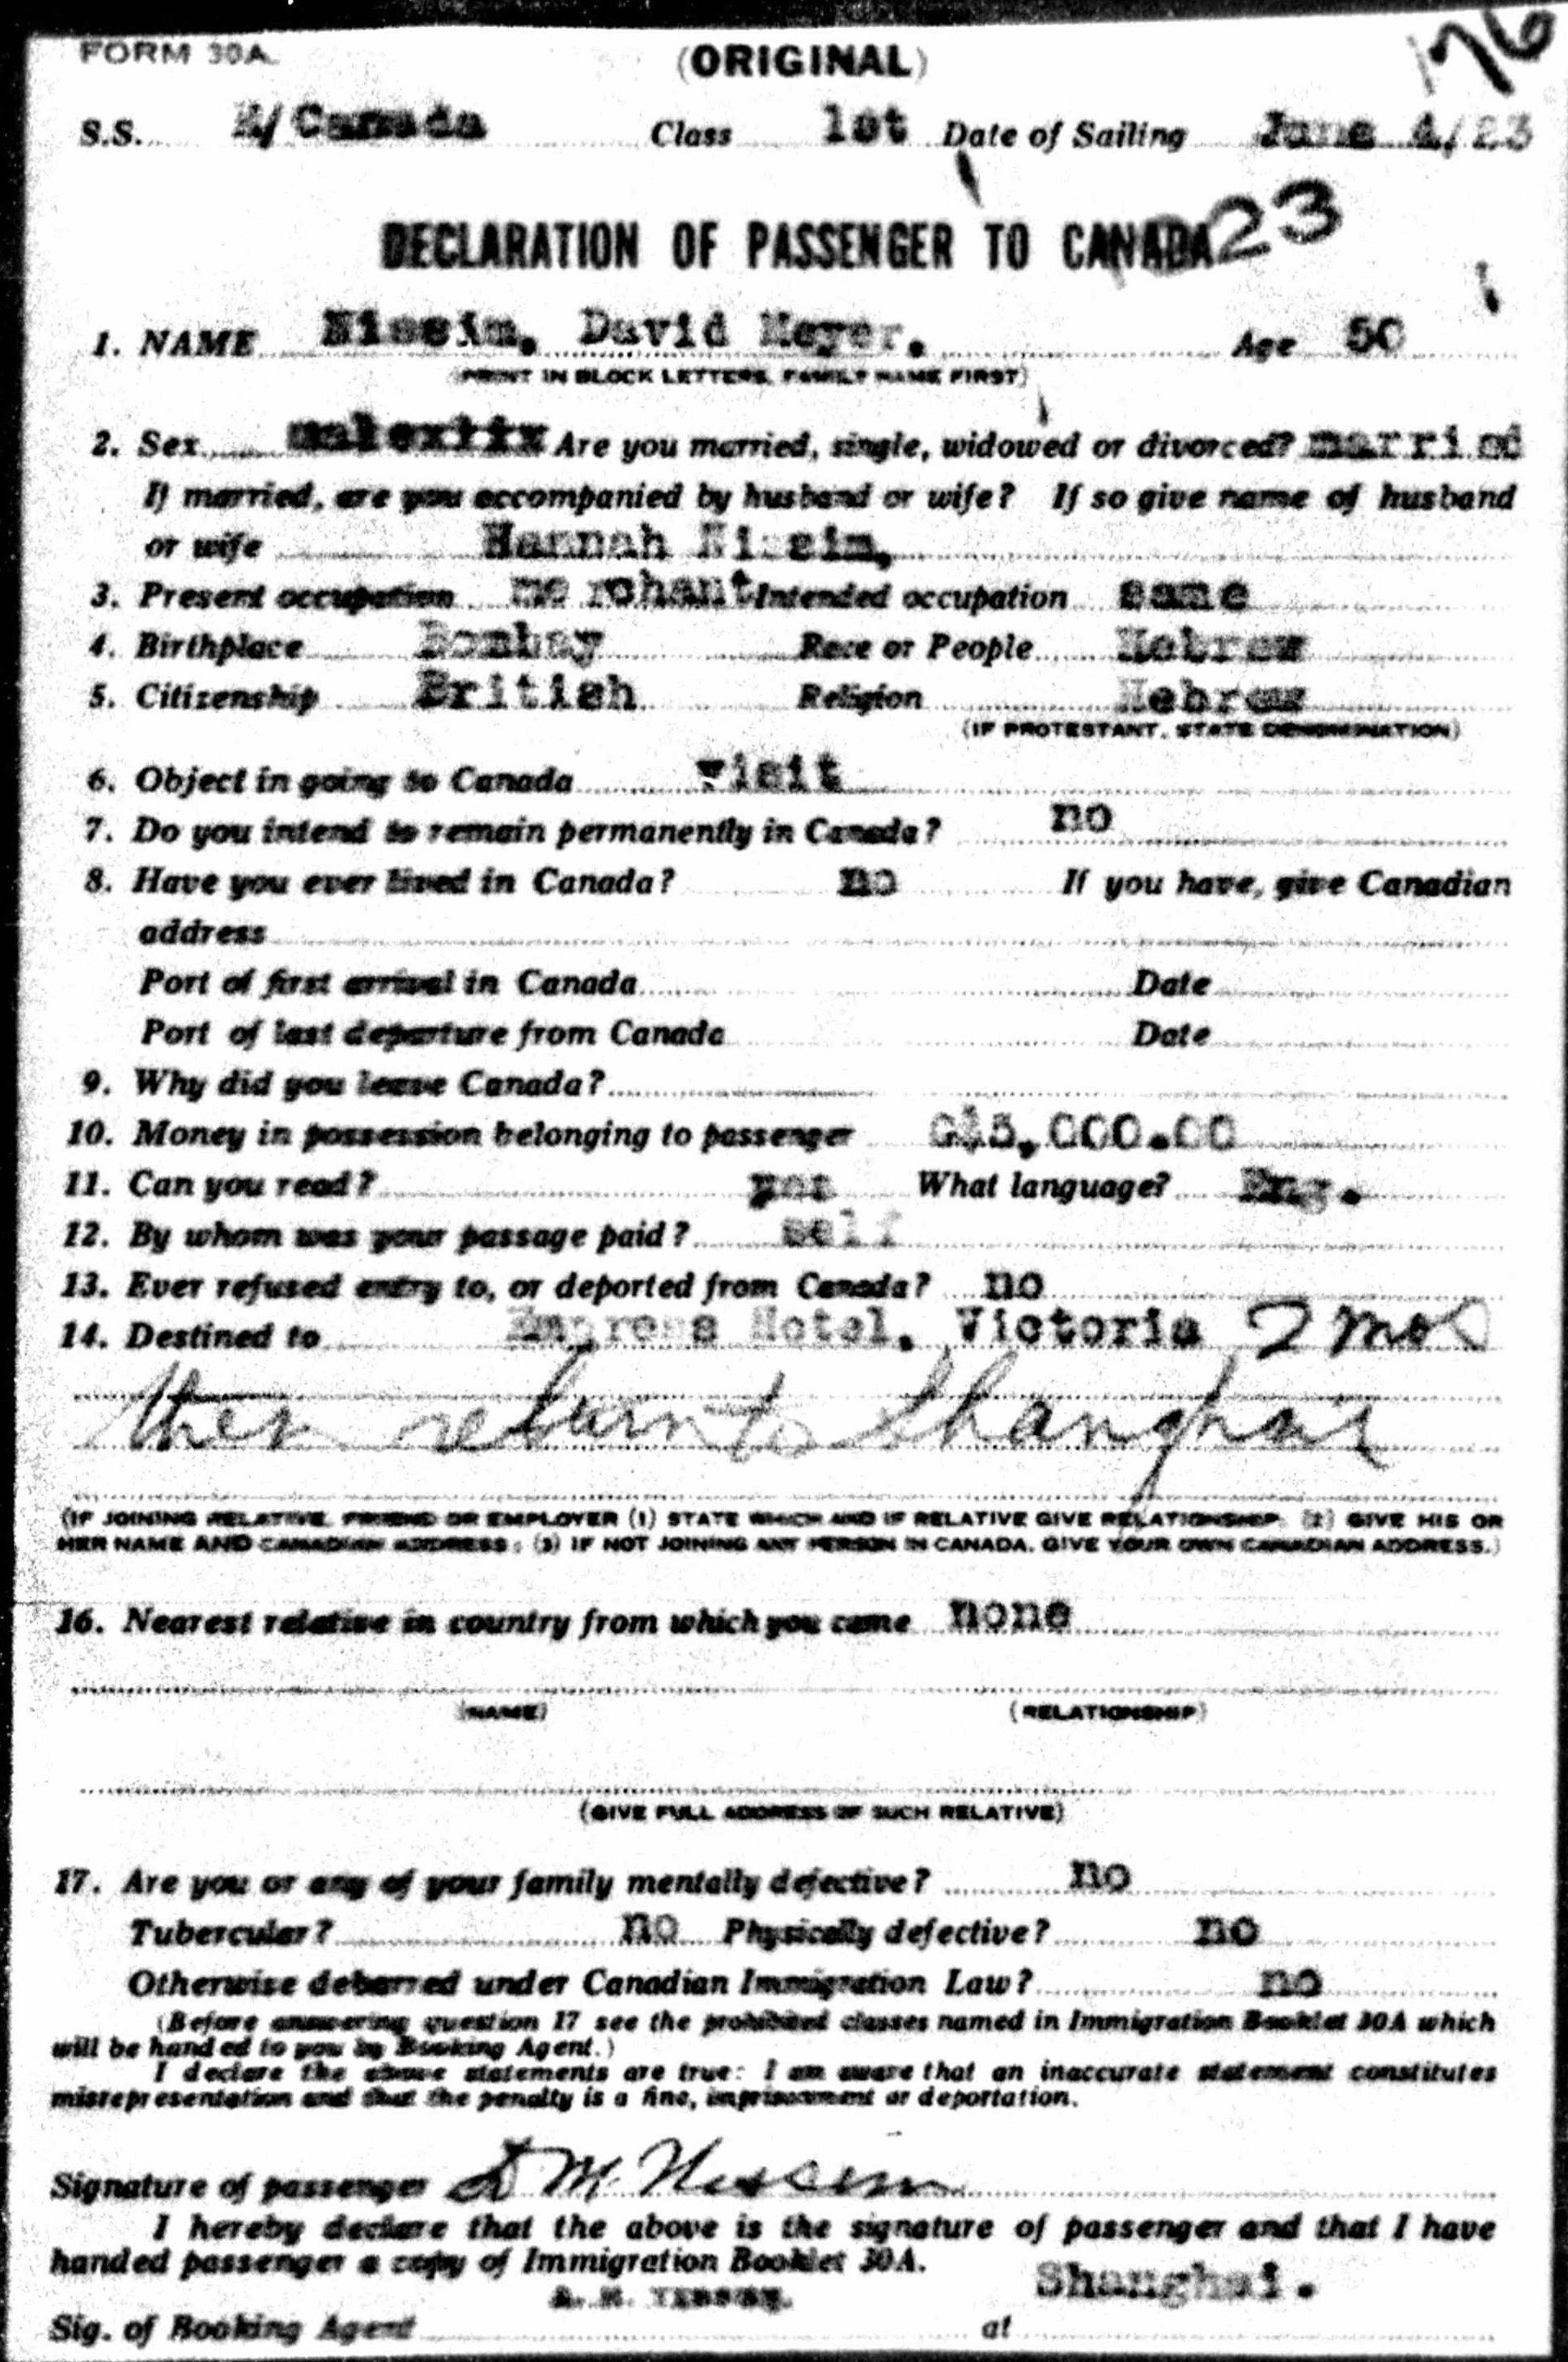 FORM 30A (ORIGINAL) 176
S.S. E/Canada Class 1st Date of Sailing June 4/23
DECLARATION OF PASSENGER TO CANADA 23
1. NAME Nissim, David Meyer. Age 50
(PRINT IN BLOCK LETTERS, FAMILY NAME FIRST)
2. Sex male Are you married, single, widowed or divorced? married
If married, are you accompanied by husband or wife? If so give name of husband
or wife Hannah Nissim,
3. Present occupation merchant Intended occupation same
4. Birthplace Bombay Race or People Hebrew
5. Citizenship British Religion Hebrew
(IF PROTESTANT, STATE DENOMINATION)
6. Object in going to Canada visit
7. Do you intend to remain permanently in Canada? no
8. Have you ever lived in Canada? no If you have, give Canadian
address
Port of first arrival in Canada Date
Port of last departure from Canada Date
9. Why did you leave Canada?
10. Money in possession belonging to passenger G$5,000.00
11. Can you read? yes What language? Eng.
12. By whom was your passage paid? self
13. Ever refused entry to, or deported from Canada? no
14. Destined to Empress Hotel, Victoria 2 mos
then return to Shanghai
(IF JOINING RELATIVE, FRIEND OR EMPLOYER (1) STATE WHICH AND IF RELATIVE GIVE RELATIONSHIP; (2) GIVE HIS OR
HER NAME AND CANADIAN ADDRESS; (3) IF NOT JOINING ANY PERSON IN CANADA, GIVE YOUR OWN CANADIAN ADDRESS.)
16. Nearest relative in country from which you came none
(NAME) (RELATIONSHIP)
(GIVE FULL ADDRESS OF SUCH RELATIVE)
17. Are you or any of your family mentally defective? no
Tubercular? no Physically defective? no
Otherwise debarred under Canadian Immigration Law? no
(Before answering question 17 see the prohibited classes named in Immigration Booklet 30A which
will be handed to you by Booking Agent.)
I declare the above statements are true: I am aware that an inaccurate statement constitutes
misrepresentation and that the penalty is a fine, imprisonment or deportation.
Signature of passenger D M. Nissim
I hereby declare that the above is the signature of passenger and that I have
handed passenger a copy of Immigration Booklet 30A.
Shanghai.
Sig. of Booking Agent at